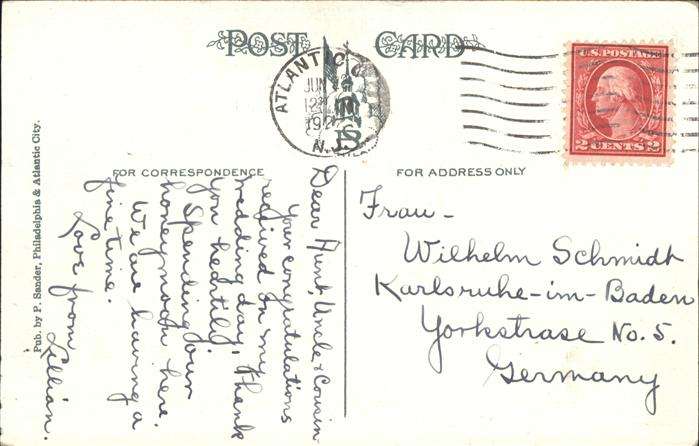 POST CARD
ATLANTIC C
JUN
12
192
N.J.
U.S. POSTAGE
2 CENTS 2
Pub. by P. Sander, Philadelphia & Atlantic City.
FOR CORRESPONDENCE
FOR ADDRESS ONLY
Dear Aunt, Uncle & Cousin
Your congratulations
received on my
wedding day. Thank
you heartily.
Spending our
honeymoon here.
We are having a
fine time.
Love from
Lillian.
Frau-
Wilhelm Schmidt
Karlsruhe-im-Baden
Yorkstrase No. 5.
Germany